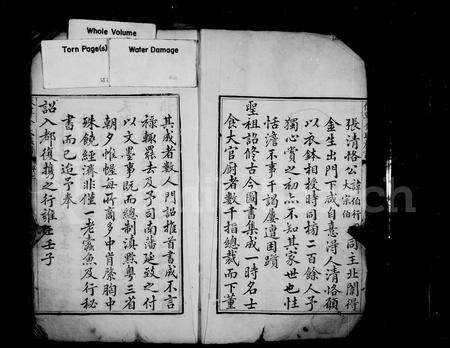 Whole Volume
Torn Page(s)
Water Damage
張清恪公諱伯行大宗伯 同主北闈得
金生出門下咸自憙得人清恪願
以衣鉢相授時同榜二百餘人予
獨心賞之初亦不知其家世也性
恬澹不事干謁屢遭困躓
聖祖詔修古今圖書集成一時名士
食大官廚者數千指總裁而下董
其成者數人門詔推首書成不言
祿輒罷去及予司南藩延致之付
以文墨事既而總制滇黔粵三省
朝夕帷幄每商多中肯綮胸中
殊饒經濟非僅一老蠹魚及行秘
書而已迨予奉
詔入都復携之行雖在壬子